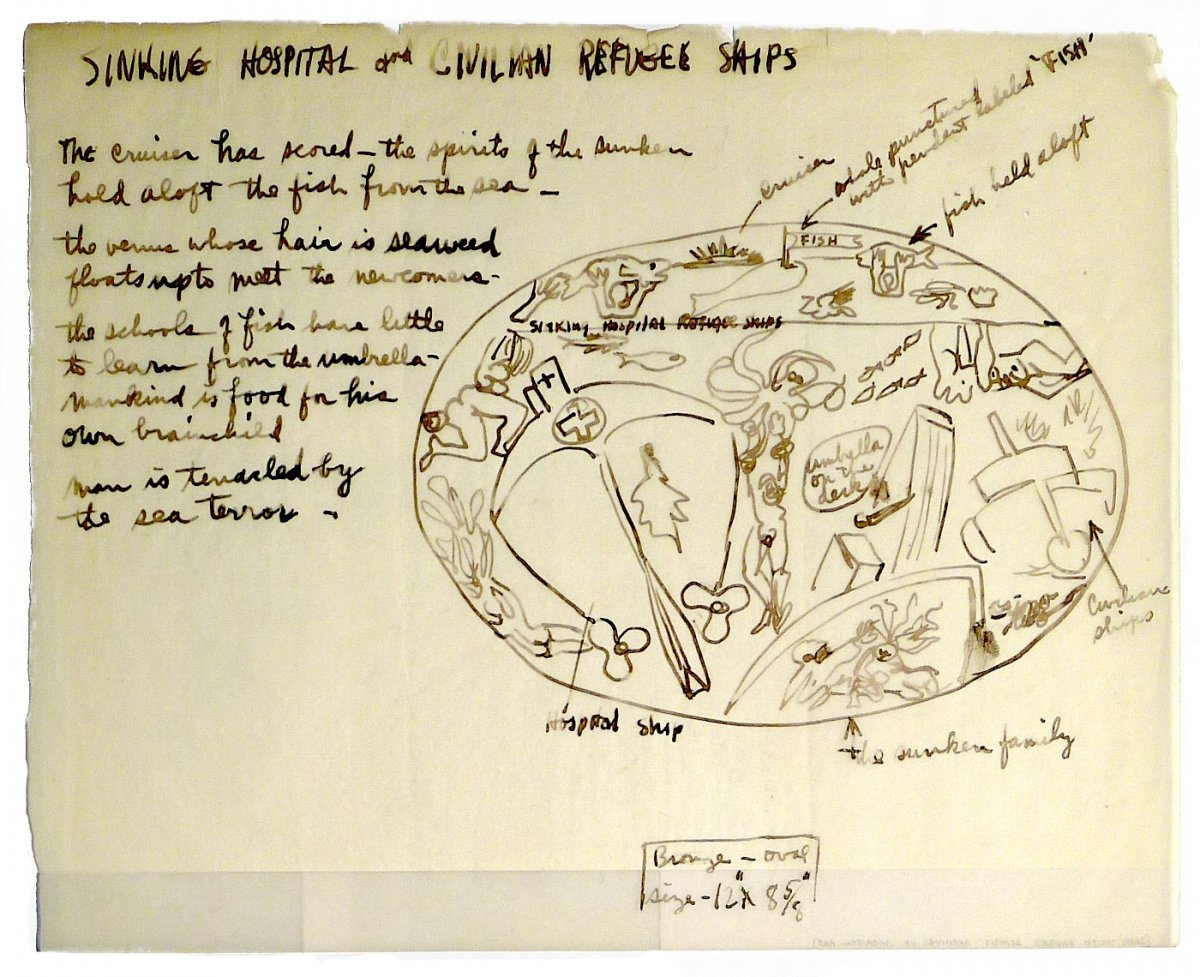 SINKING HOSPITAL and CIVILIAN REFUGEE SHIPS
The cruiser has scored — the spirits of the sunken
hold aloft the fish from the sea —
the venus whose hair is seaweed
floats up to meet the newcomers -
the schools of fish have little
to learn from the umbrella -
mankind is food for his
own brainchild
man is tentacled by
the sea terror -
cruiser
whale punctured
with pendant labeled "FISH"
fish held aloft
FISH
SINKING HOSPITAL REFUGEE SHIPS
umbrella
on the
deck
Civilian
ships
Hospital Ship
the sunken family
Bronze — oval
size - 12" X 8 5/8"